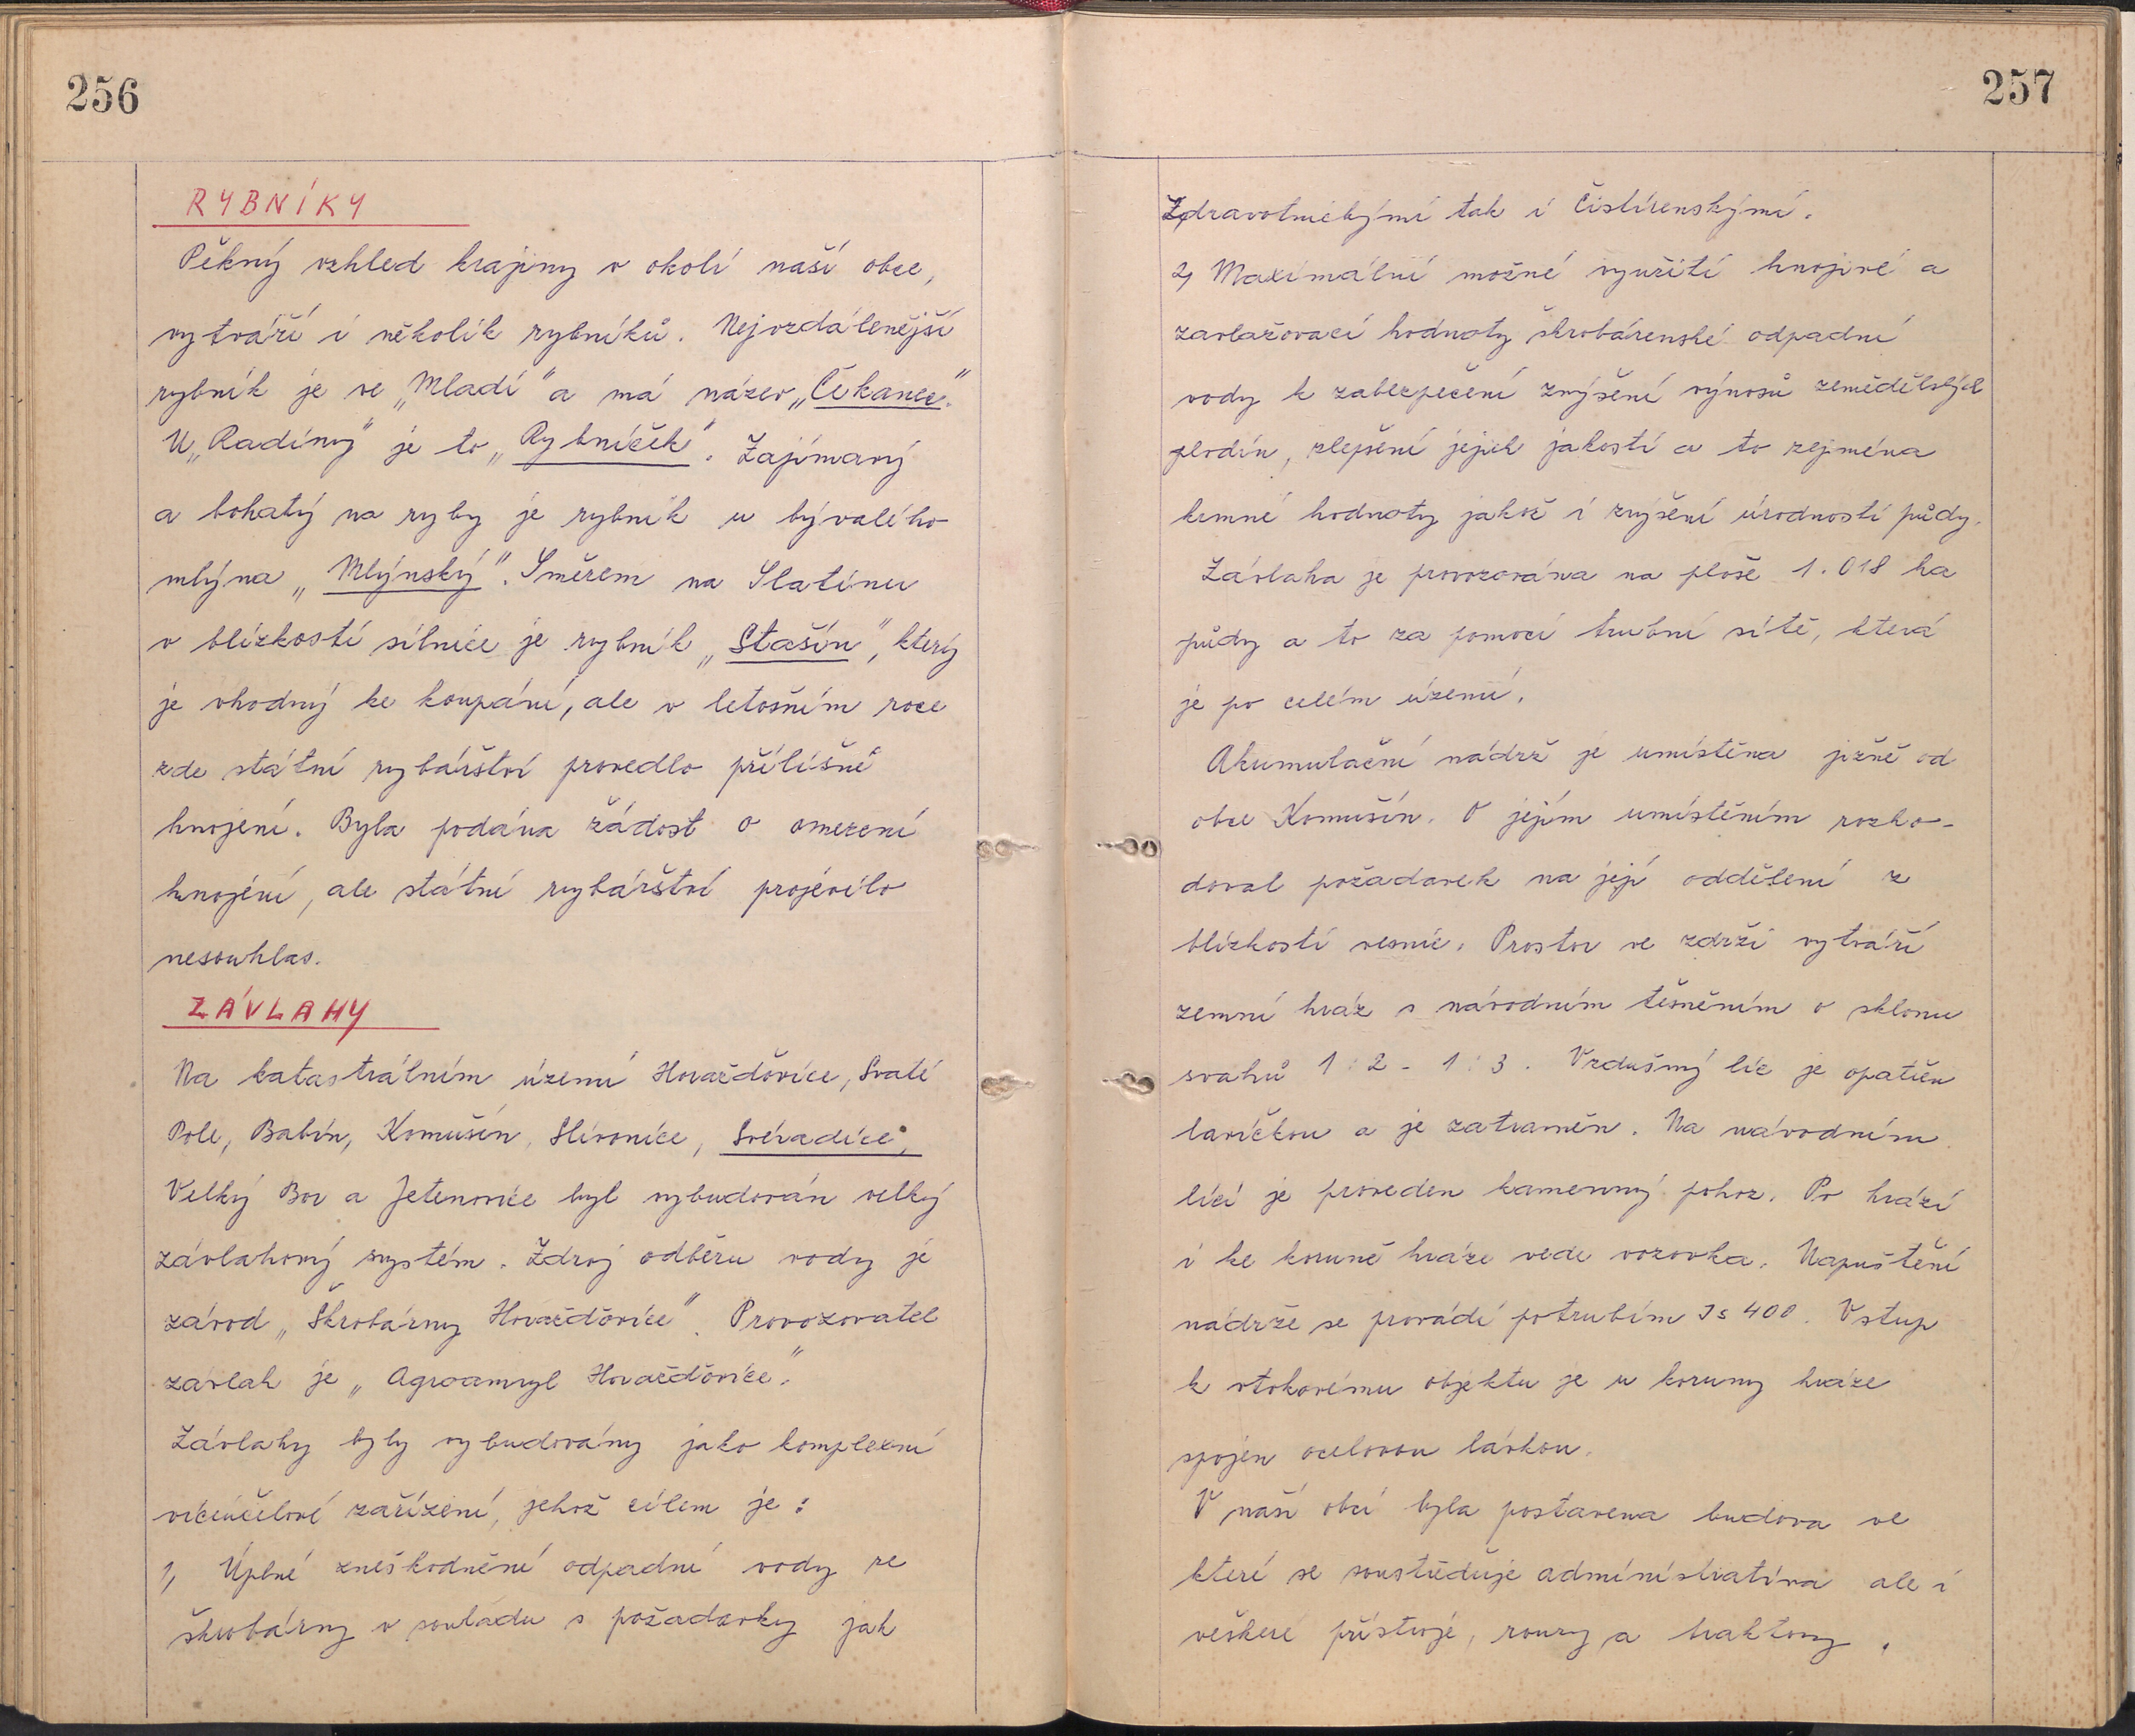 256
RYBNÍKY
Pěkný vzhled krajiny v okolí naší obce,
vytváří i několik rybníků. Nejvzdálenější
rybník je ve „Mladí" a má název „Čekanec".
U „Radiny" je to „Rybníček". Zajímavý
a bohatý na ryby je rybník u bývalého
mlýna „Mlýnský". Směrem na Slatinu
v blízkosti silnice je rybník „Stašín", který
je vhodný ke koupání, ale v letošním roce
zde státní rybářství provedlo přílišné
hnojení. Byla podána žádost o omezení
hnojení, ale státní rybářství projevilo
nesouhlas.
ZÁVLAHY
Na katastrálním území Horažďovice, Svaté
Pole, Babín, Komušín, Slivonice, Svéradice,
Velký Bor a Jetenovice byl vybudován velký
závlahový systém. Zdroj odběru vody je
závod „Škrobárny Horažďovice". Provozovatel
závlah je „Agroamyl Horažďovice".
Závlahy byly vybudovány jako komplexní
víceúčelové zařízení, jehož cílem je:
1, Úplné zneškodnění odpadní vody ze
škrobárny v souladu s požadavky jak
257
Zdravotnickými tak i čistírenskými.
2, Maximální možné využití hnojivé a
zavlažovací hodnoty škrobárenské odpadní
vody k zabezpečení zvýšení výnosů zemědělských
plodin, zlepšení jejich jakosti a to zejména
krmné hodnoty jakož i zvýšení úrodnosti půdy.
Závlaha je provozována na ploše 1.018 ha
půdy a to za pomoci trubní sítě, která
je po celém území.
Akumulační nádrž je umístěna jižně od
obce Komušín. O jejím umístěním rozho-
doval požadavek na její oddělení z
blízkosti vesnic. Prostor ve zdrži vytváří
zemní hráz s návodním těsněním o sklonu
svahů 1:2 - 1:3. Vzdušný líc je opatřen
lavičkou a je zatravněn. Na návodním
líci je proveden kamenný pohoz. Po hrázi
i ke koruně hráze vede vozovka. Napuštění
nádrže se provádí potrubím Js 400. Vstup
k vtokovému objektu je u koruny hráze
spojen ocelovou lávkou.
V naší obci byla postavena budova ve
které se soustřeďuje administrativa ale i
veškeré přístroje, roury a traktory.